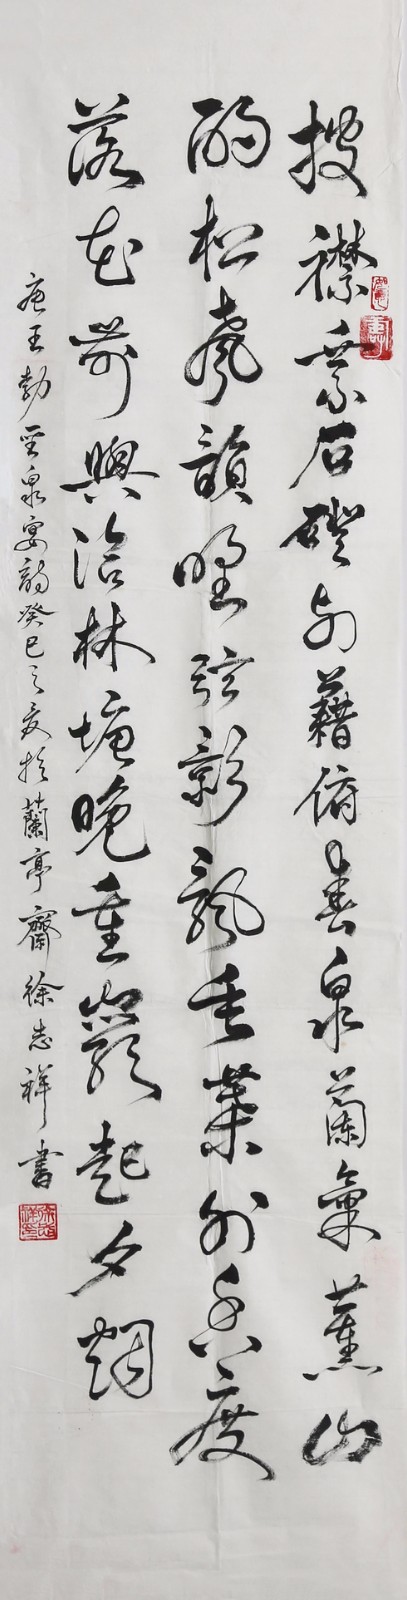 披襟乘石磴列藉俯春泉蘭氣薰山
酌松聲韻野弦影飄垂葉外香度
落花前興洽林塘晚重巖起夕烟
唐王勃聖泉宴詩癸巳之夏於蘭亭齋徐志祥書